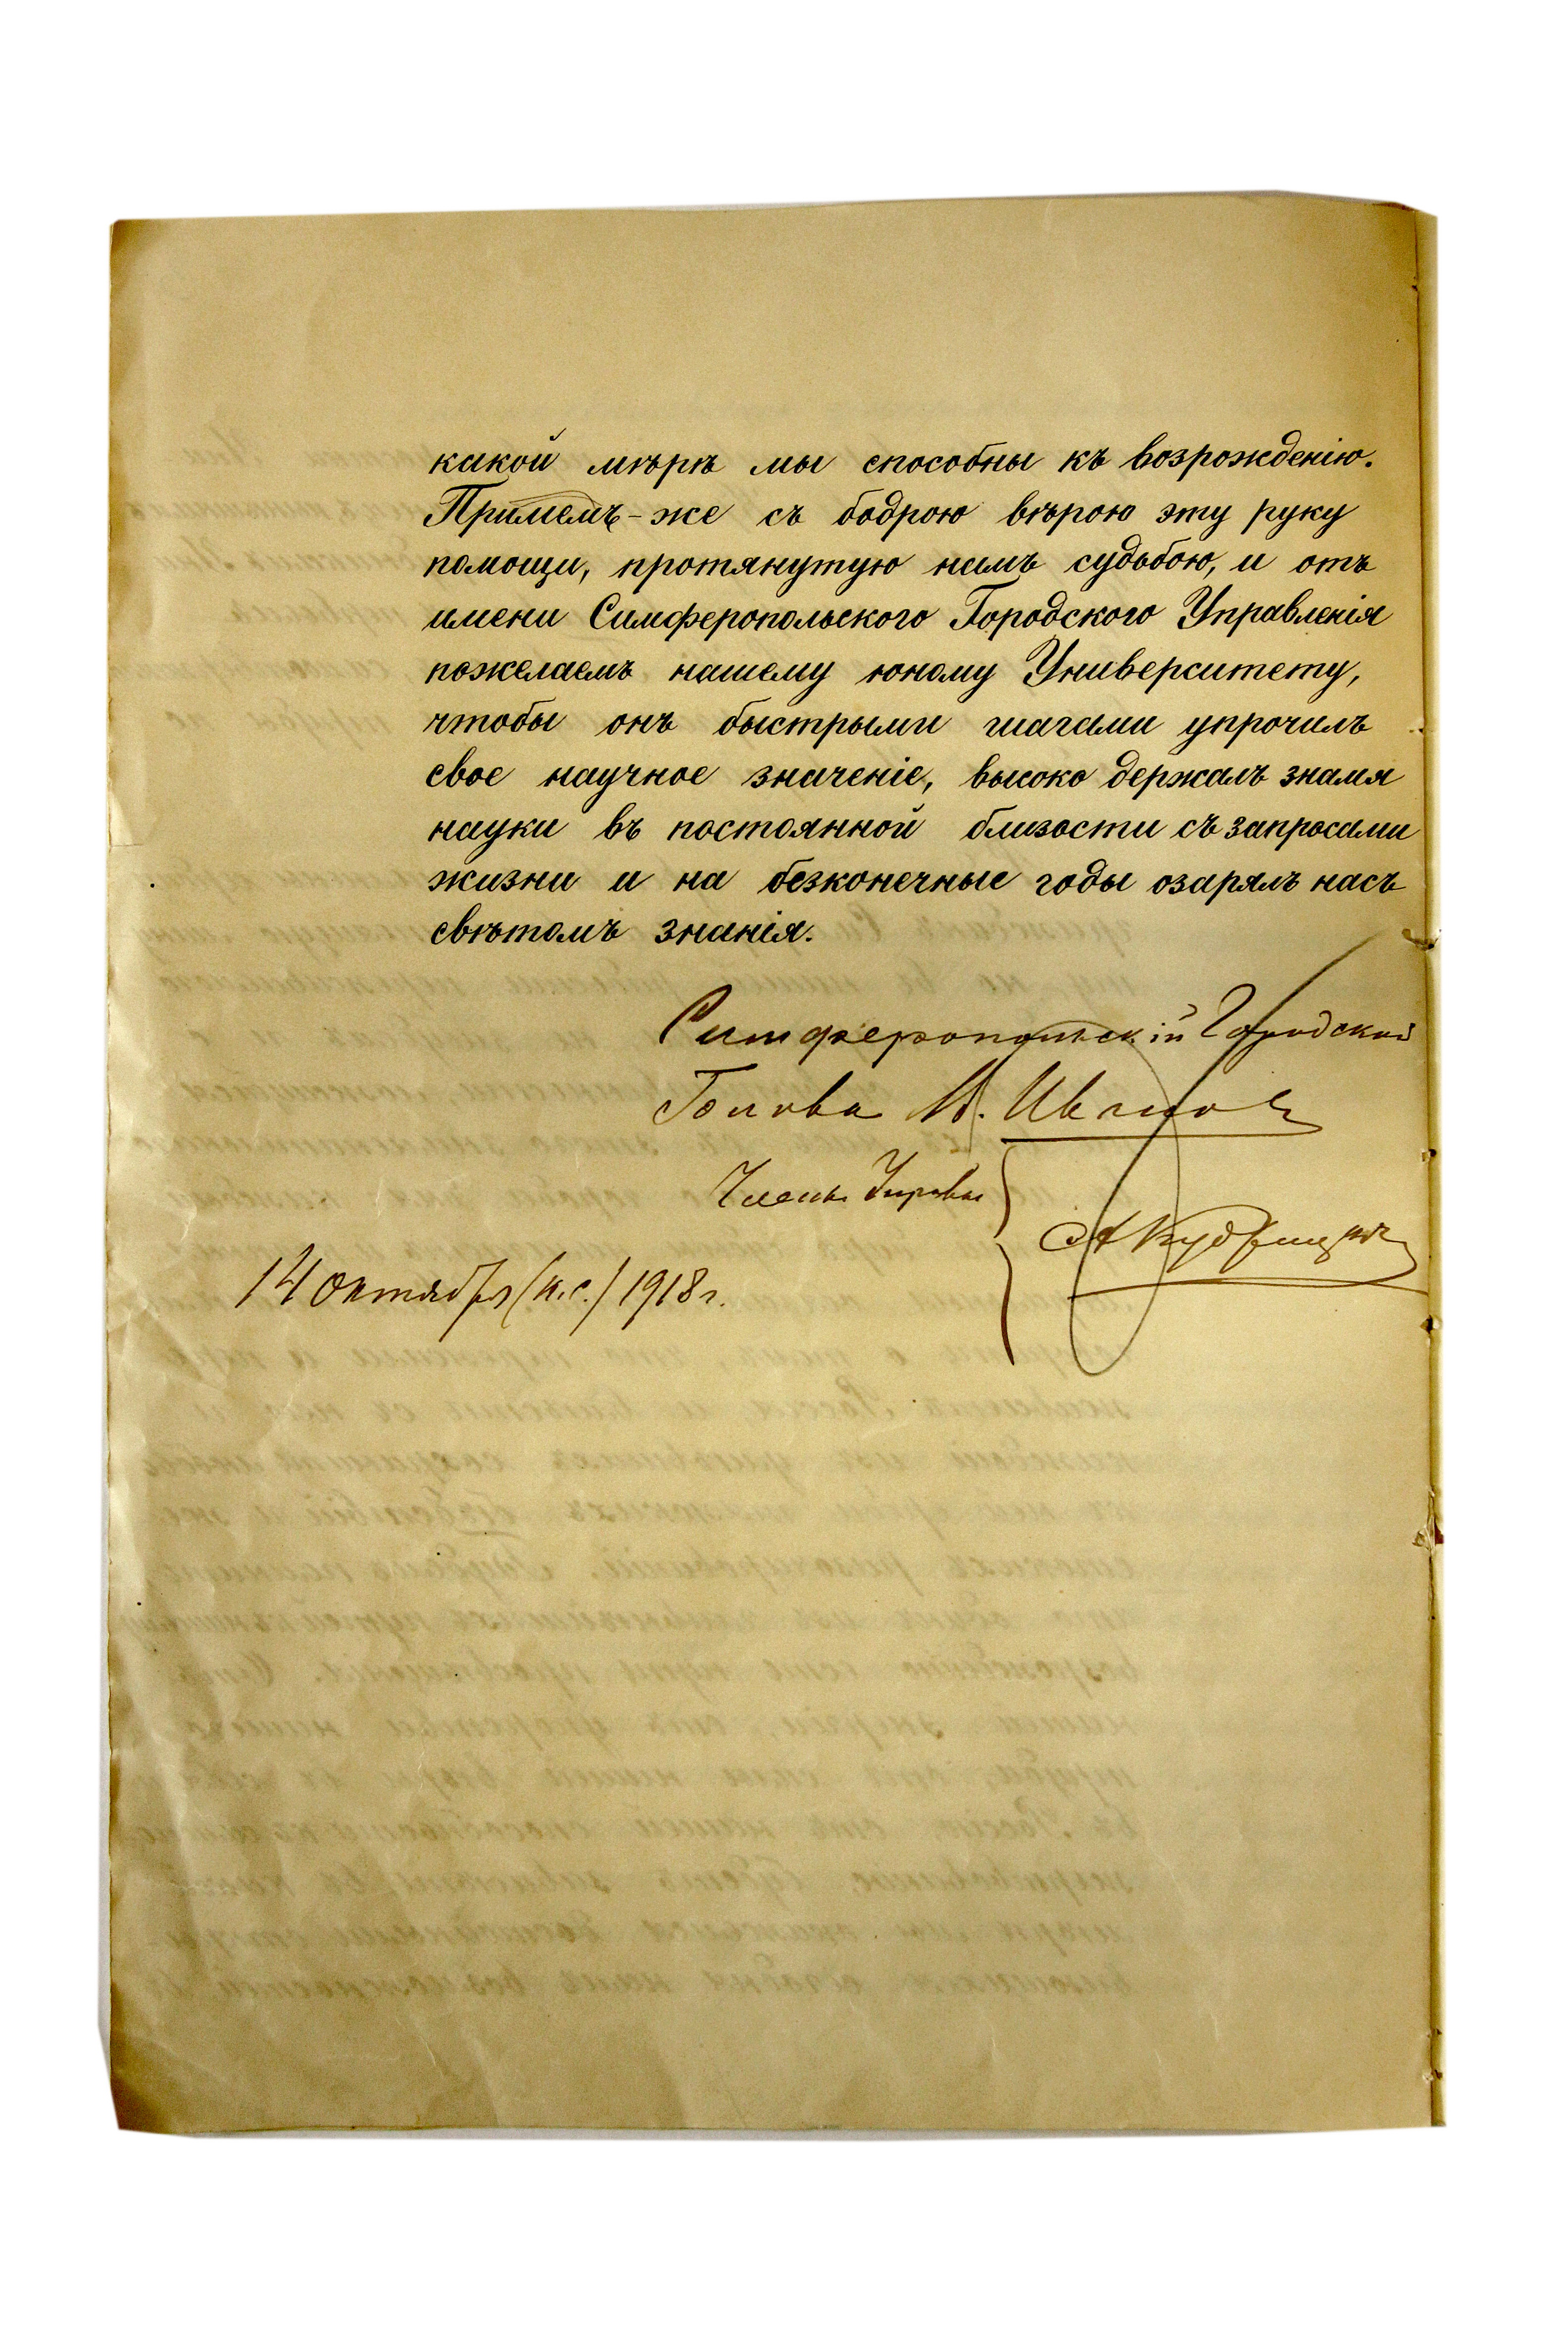 какой мѣрѣ мы способны къ возрожденію.
Примемъ-же съ бодрою вѣрою эту руку
помощи, протянутую намъ судьбою, и отъ
имени Симферопольского Городского Управленія
пожелаемъ нашему юному Университету,
чтобы онъ быстрыми шагами упрочилъ
свое научное значеніе, высоко держалъ знамя
науки въ постоянной близости съ запросами
жизни и на безконечные годы озарялъ насъ
свѣтомъ знанія.
Симферопольскій Городской
Голова М. Иванов
Члены Управы
14 октября (н.с.) 1918 г.